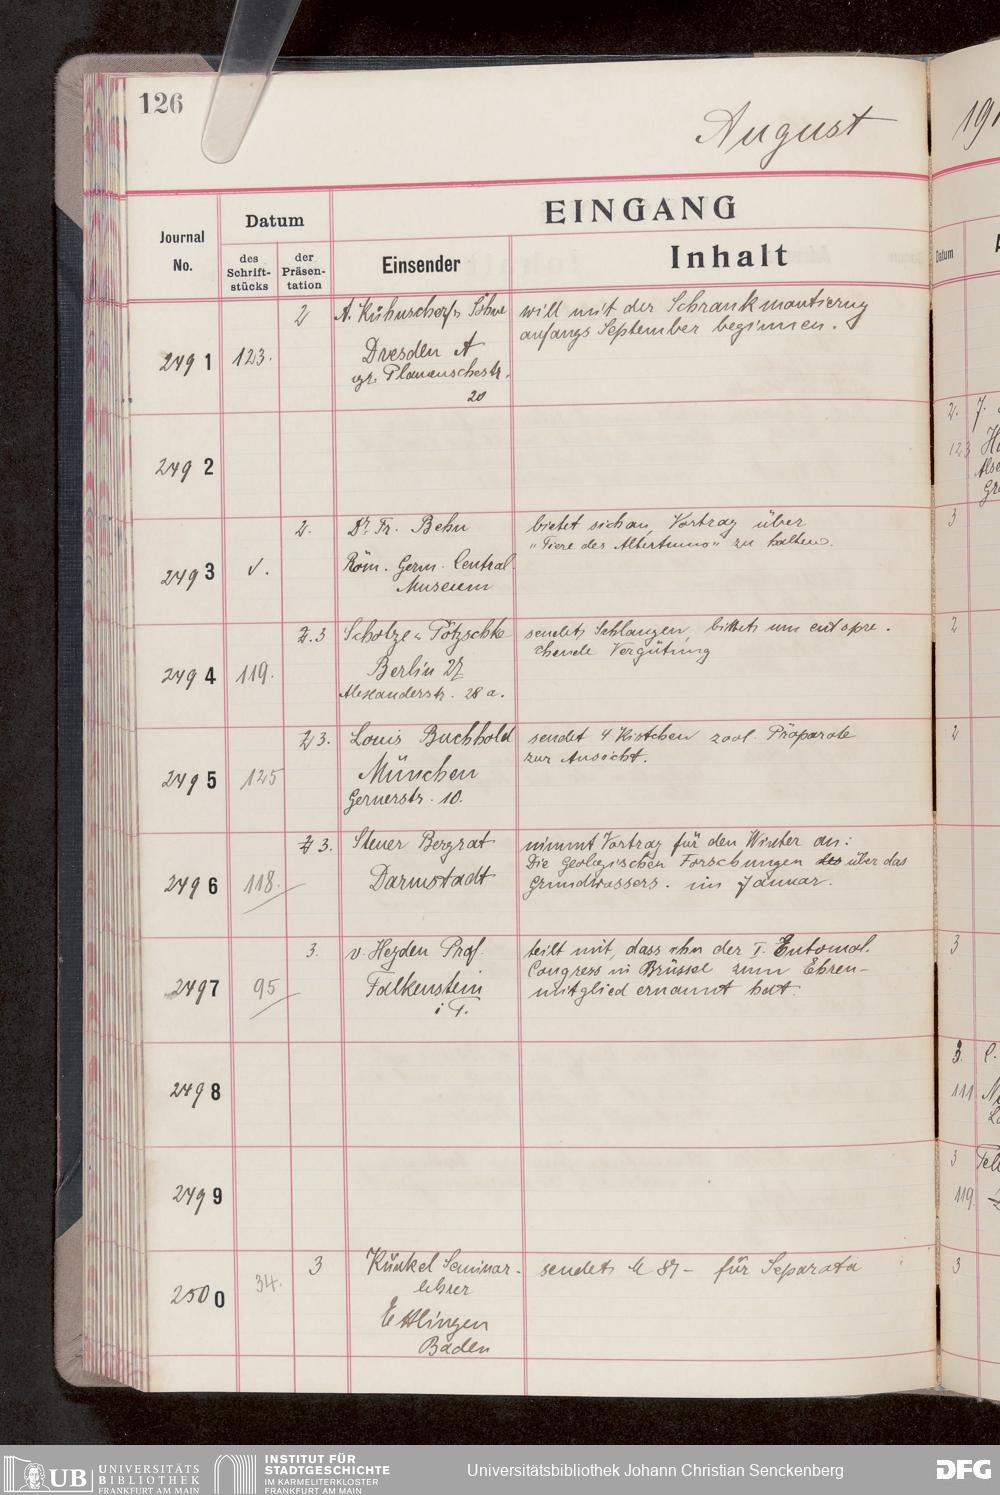 126
August
191
EINGANG
Journal
No.
Datum
des
Schrift-
stücks
der
Präsen-
tation
Einsender
Inhalt
Datum
A
2491
123.
2
A. Kühnscherf u. Söhne
Dresden A
gr. Plauenschestr.
20
will mit der Schrankmontierung
anfangs September beginnen.
2492
2493
v.
2.
Dr. Fr. Behn
Röm. Germ. Central
Museum
bietet sich an, Vortrag über
"Tiere des Altertums" zu halten.
2494
119.
2.3
Scholze u. Pötzschke
Berlin 27
Alexanderstr. 28 a.
sendet Schlangen, bittet um entspre-
chende Vergütung
2495
125
2 3.
Louis Buchhold
München
Gernerstr. 10.
sendet 4 Kistchen zool. Präparate
zur Ansicht.
2496
118.
3.
Steuer Bergrat
Darmstadt
nimmt Vortrag für den Winter an:
Die Geologischen Forschungen des über das
Grundwassers. im Januar.
2497
95
3.
v. Heyden Prof.
Falkenstein
i T.
teilt mit, dass ihn der I. Entomol.
Congress in Brüssel zum Ehren-
mitglied ernannt hat.
2498
2499
2500
34.
3
Künkel Seminar-
lehrer
Ettlingen
Baden
sendet M 87 - für Separata
2.
123
3
2
2
3
3.
111
3
119
3
UB UNIVERSITÄTS
BIBLIOTHEK
FRANKFURT AM MAIN
INSTITUT FÜR
STADTGESCHICHTE
IM KARMELITERKLOSTER
FRANKFURT AM MAIN
Universitätsbibliothek Johann Christian Senckenberg
DFG